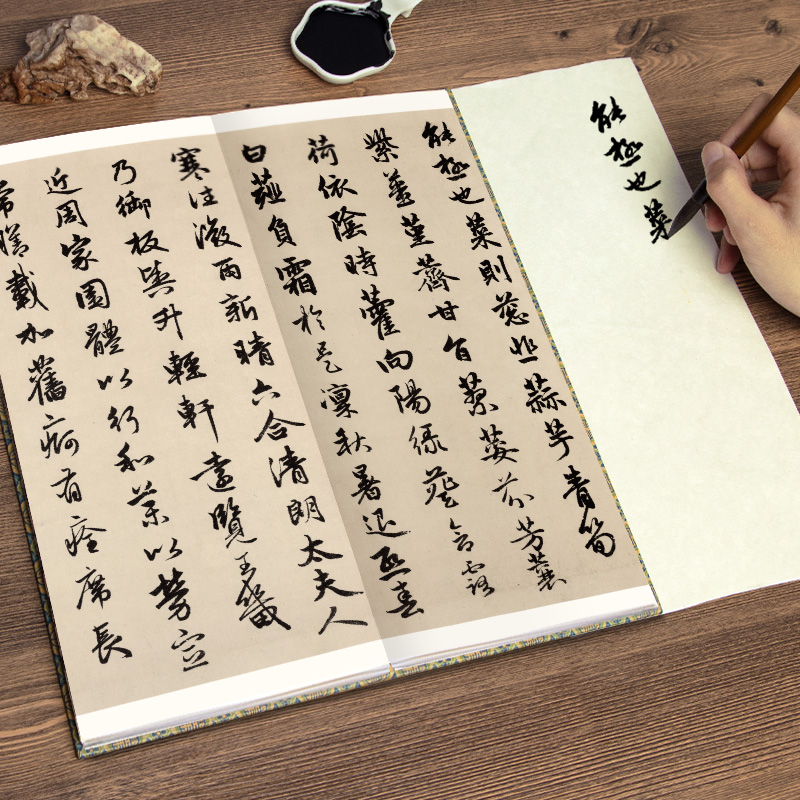 能極也菜
能極也菜則蔥韭蒜芋青筍
紫薑堇薺甘旨蓼荽芬芳蘘
荷依陰時藿向陽綠葵含露
白薤負霜於是凜秋暑退熙春
寒往微雨新晴六合清朗太夫人
乃御板輿升輕軒遠覽王畿
近周家園體以行和藥以勞宣
常膳載加舊痾有痊席長